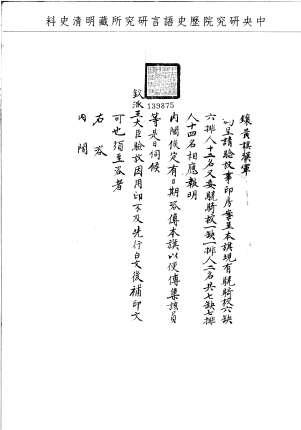 中央研究院歷史語言研究所藏明清史料
139875
鑲黃旗漢軍
為呈請驗放事印房案呈本旗現有驍騎校六缺
六排人十二名又委驍騎校一缺一排人二名共七缺七排
人十四名相應報明
內閣候定有日期咨傳本旗以便傳集該員
等是日伺候
欽派王大臣驗放因用印不及先行白文後補印文
可也須至咨者
右咨
內閣